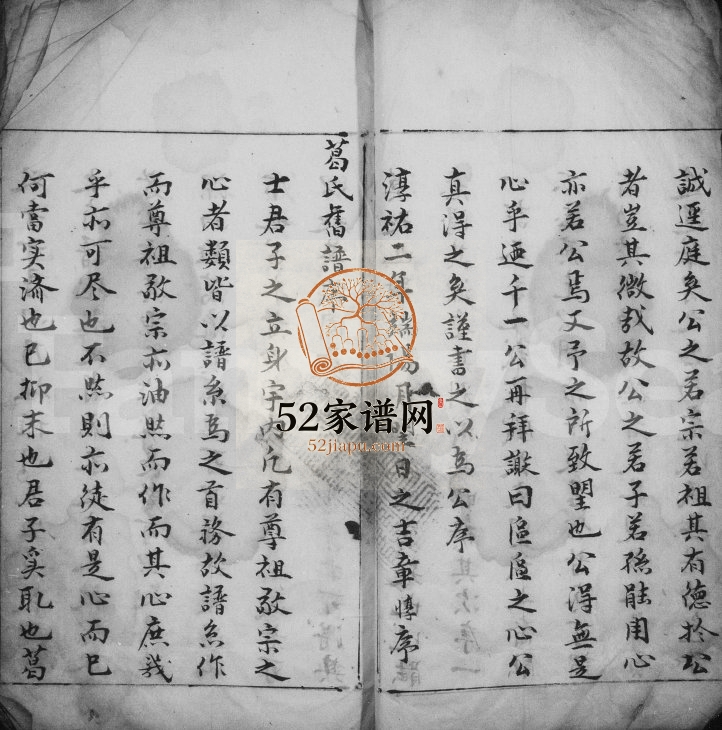 誠逕庭矣公之若宗若祖其有德於公
者豈其微哉故公之若子若孫能用心
亦若公焉又予之所致望也公得無是
心乎迺千一公再拜謝曰區區之心公
真得之矣謹書之以為公序
淳祐二年端陽月日之吉章惇序
葛氏舊譜序
士君子之立身宇內凡有尊祖敬宗之
心者類皆以譜系為之首務故譜系作
而尊祖敬宗亦油然而作而其心庶幾
乎亦可尽也不然則亦徒有是心而已
何當实濟也已抑末也君子奚取也葛
52家谱网
52jiapu.com